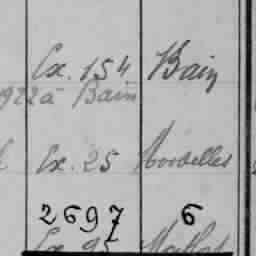 Ex. 154 Bain
1922 à Bain
Ex. 25 Mordelles
2697 6
Ex. 95